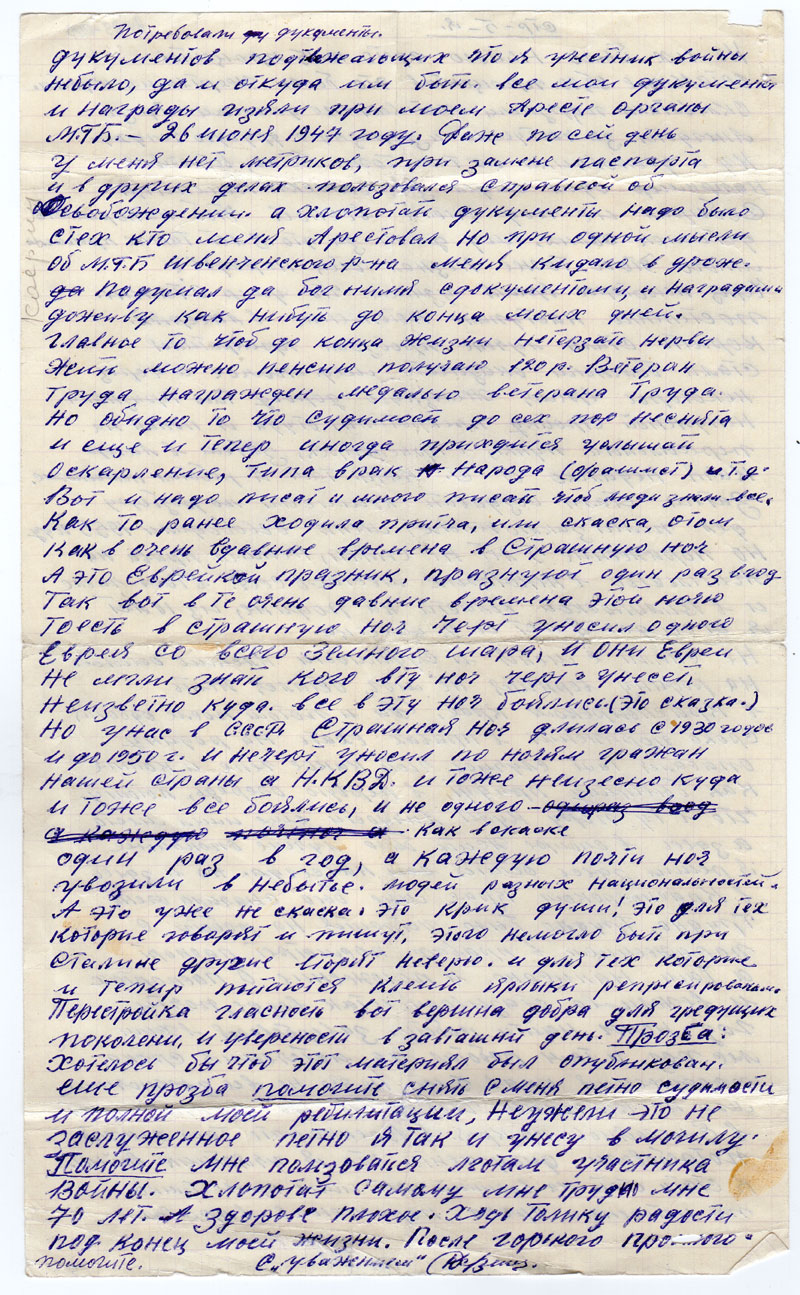 Потребовали дукументы.
дукументов подтвежающих что я участник войны
небыло, да и откуда им быть все мои дукументы
и награды изяли при моем Аресте органы
М.Г.Б. – 26 июня 1947 году. Даж по сей день
у меня нет метриков, при замене паспорта
и в других делах пользовался справкой об
Освобождении. а хлопотат дукументы надо было
стех кто меня Арестовал но при одной мысли
об М.Г.Б Швенченского р-на меня кидало в дрож.
да Подумал да бог нимя сдокументоми, и наградами
доживу как нибуть до конца моих дней.
главное то чтоб до конца жизни нетерзат нервы
Жить можно пенсию получаю 120 р. Ветеран
труда награжден медалью ветерана Труда.
Но обидно то что судимость до сех пор неснята
и еще и тепер иногда приходится услышат
Оскарление, типа врак Народа (фашист) и.т.д.
Вот и надо писат и много писат чтоб люди знали все.
Как то ранее ходила притча, или скаска, отом
как в очень вдавние времена в Страшную ноч
А это Еврейской празник, празнуют один раз вгод
Так вот в те очень давние времена этой ночю
тоесть в страшную ноч Чорт уносил одного
Еврея со всего Земного шара, И они Евреи
не могли знат кого вту ноч черт унесет,
неизветно куда. все в эту ноч боялись (это сказка.)
Но унас в СССР. Страшная ноч длилась с 1930 годов
и до 1950 г. и нечерт уносил по ночям гражан
нашей страны а Н.К.В.Д. и тоже неизесно куда
и тоже все боялись, и не одного одираз вгод
а каждую почти ноч а как вскаске
один раз в год, а каждую почти ноч
увозили в небытье. людей разных национальностей.
А это уже не скаска. это крик души! это для тех
которые говорят и пишут, этого немогло быт при
Сталине другие вторят неверю. и для тех которые
и тепир пытаются клеит ярлыки репресированым.
Перестройка гласность вот вершина добра для гредущих
поколени, и увереность в завташний день. Прозба:
Хотелось бы чтоб этот материял был опубликован.
еще прозба помогите снять с меня петно судимости
и полной моей ребилитации, Неужели это не
заслуженное петно я так и унесу в могилу.
Помогите мне ползоватся лготам участника
Войны. Хлопотат самому мне трудно мне
70 лет. А здорове плохое. Хоть толику радости
под конец моей жизни. После горкого прошлого
помогите. С „уважением"